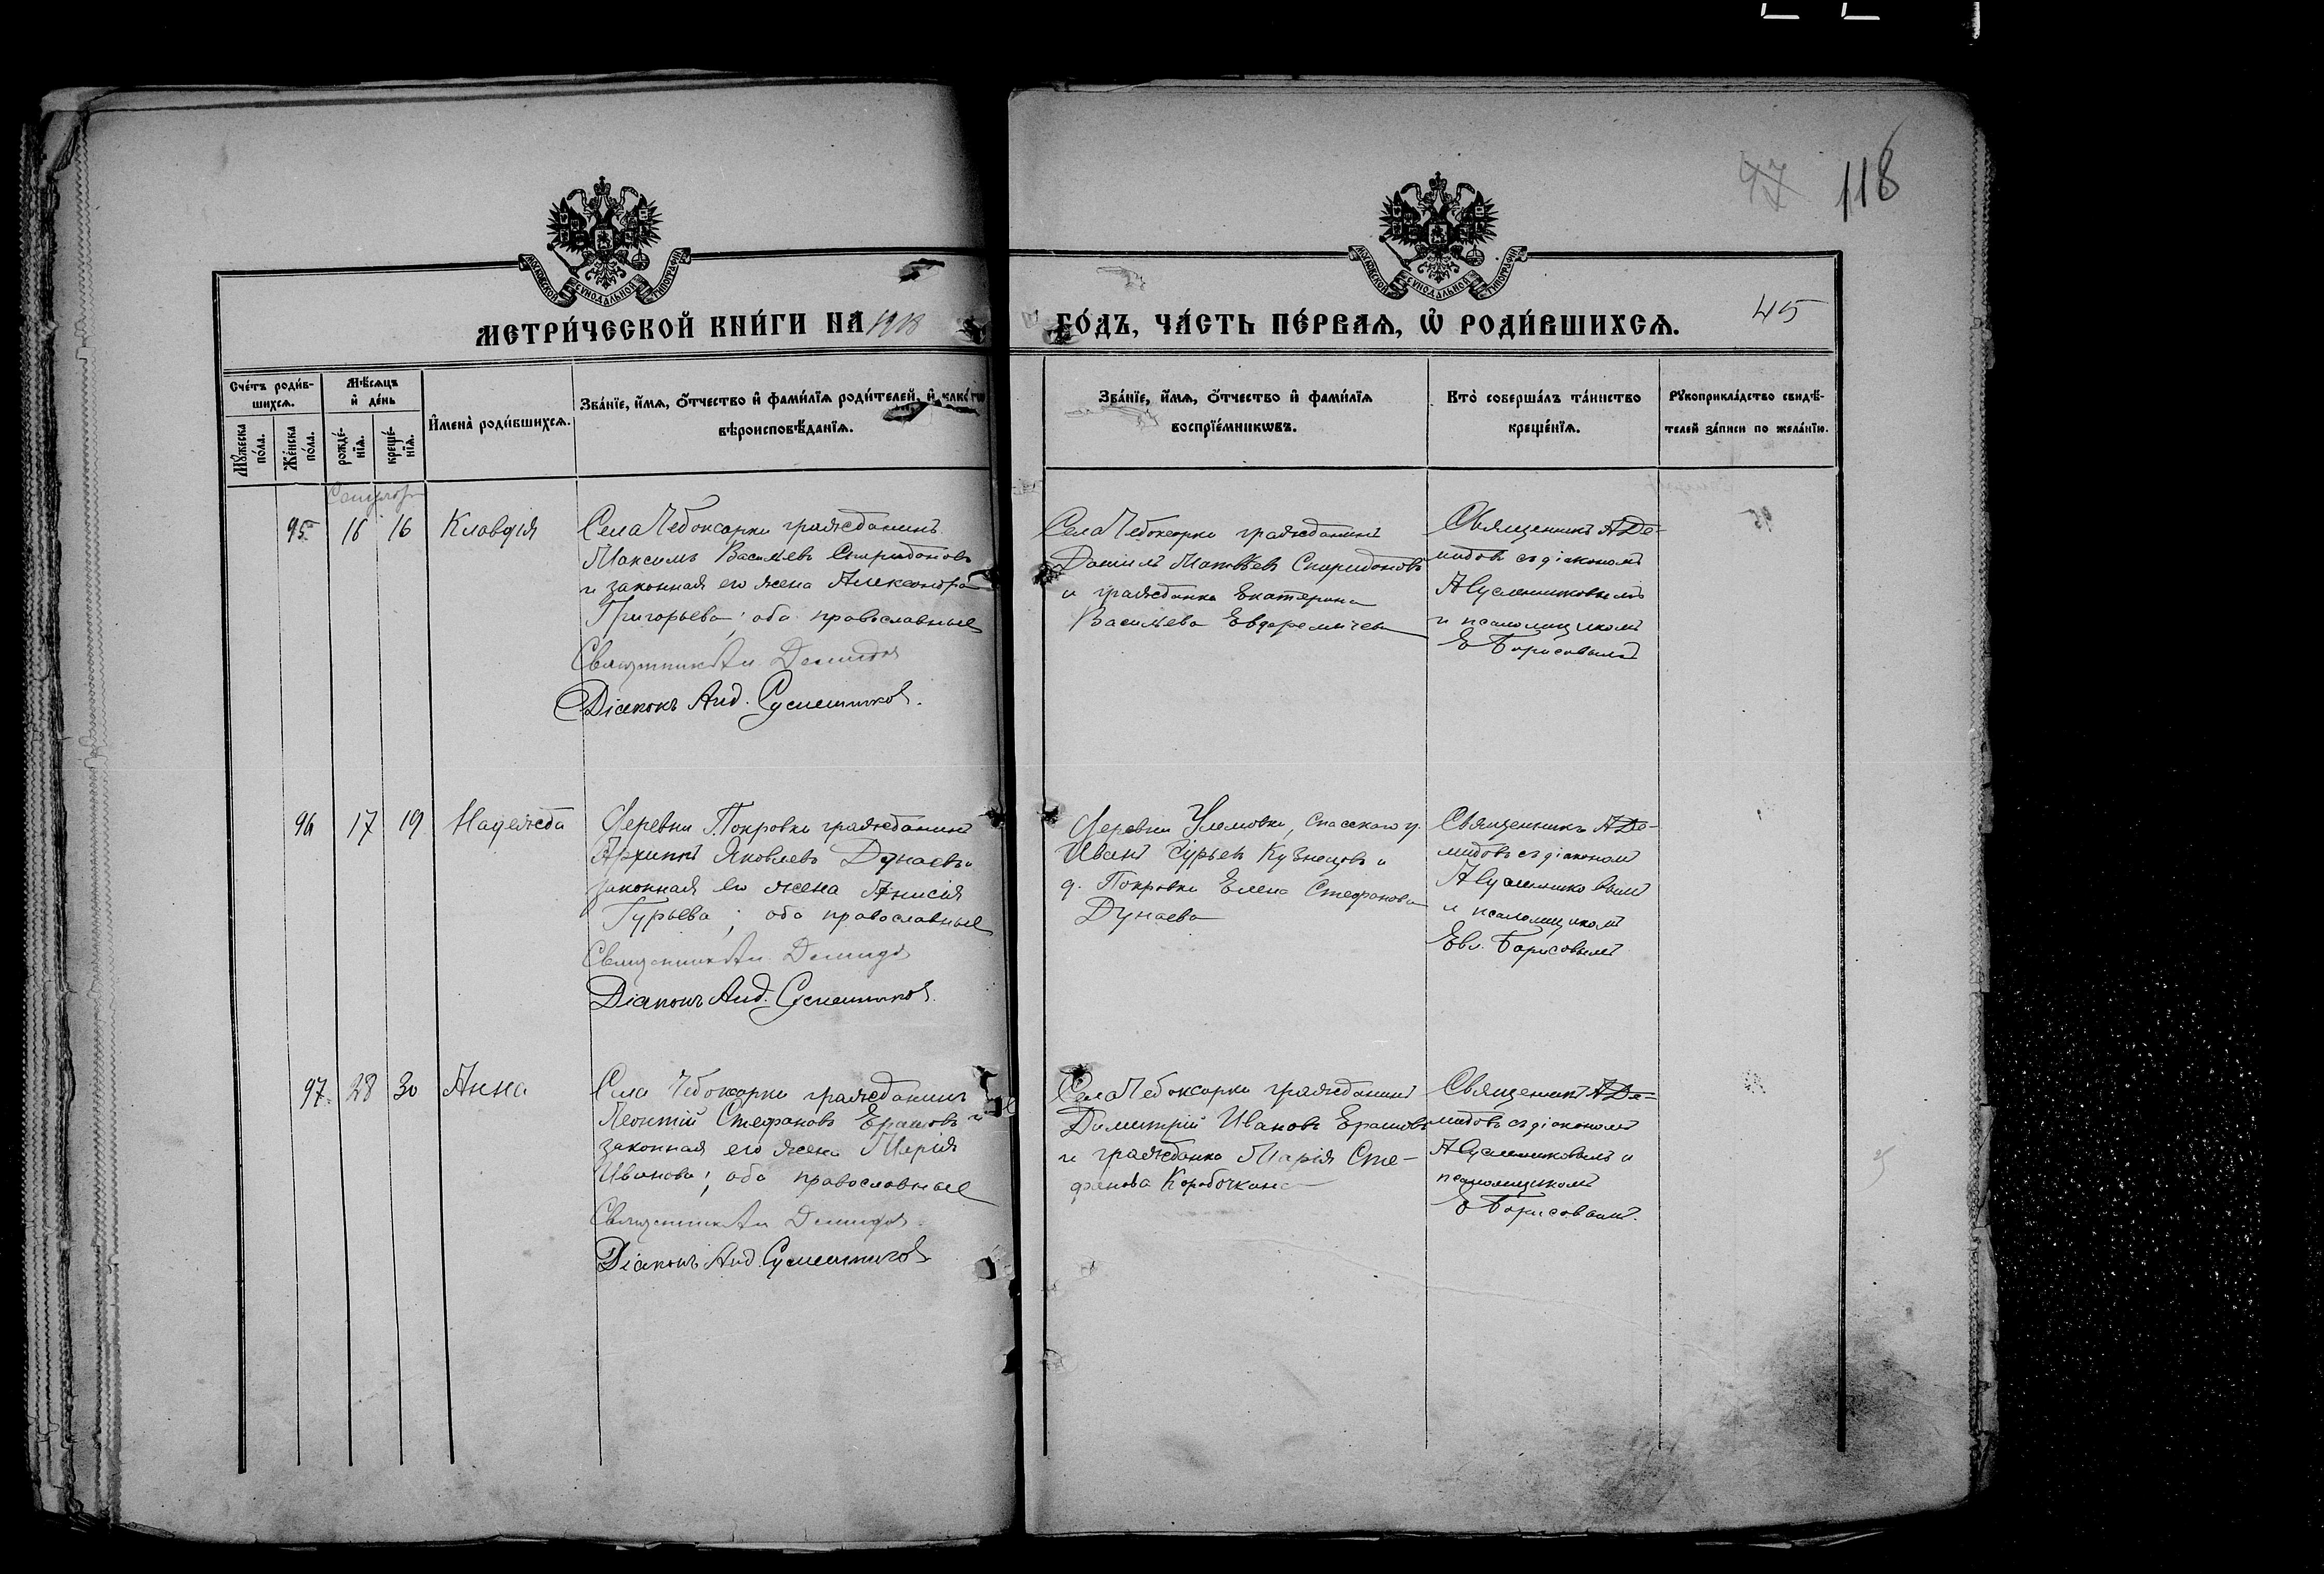 97 118
МОСКОВСКОЙ СУНОДАЛЬНОЙ ТИПОГРАФІИ
МОСКОВСКОЙ СУНОДАЛЬНОЙ ТИПОГРАФІИ
МЕТРИ́ЧЕСКОЙ КНИ́ГИ НА 1918
ГО́ДЪ, ЧА́СТЬ ПЕ́РВАѦ, Ѡ҆ РОДИ́ВШИХСѦ.
45
Сче́тъ роди́в-
шихсѧ.
Мꙋ́жеска
по́ла.
Же́нска
по́ла.
Мѣ́сѧцъ
и҆ де́нь
рожде́-
нїѧ.
креще́-
нїѧ.
И҆мена̀ роди́вшихсѧ.
Зва́нїе, и҆́мѧ, ѻ҆́тчество и҆ фами́лїѧ роди́телей, и҆ како́гѡ
вѣроисповѣ́данїѧ.
Зва́нїе, и҆́мѧ, ѻ҆́тчество и҆ фами́лїѧ
воспрїе́мникѡвъ.
Кто̀ соверша́лъ та́инство
креще́нїѧ.
Рꙋкоприкла́дство свидѣ́-
телей за́писи по жела́нїю.
95 16 16 Клавдія
Села Чебоксарки гражданинъ
Максимъ Васильевъ Спиридоновъ
и законная его жена Александра
Григорьева; оба православные
Священникъ Ал. Демидов
Діаконъ Анд. Сусленников.
Села Чебоксарки гражданинъ
Даніилъ Матвѣевъ Спиридоновъ
и гражданка Екатерина
Васильева
Священникъ А Де-
мидовъ съ діакономъ
А Сусленниковымъ
и псаломщикомъ
Е Борисовымъ
96 17 19 Надежда
Деревни Покровки гражданинъ
Архиппъ Яковлевъ Дунаевъ и
законная его жена Анисія
Гурьева; оба православные
Священникъ Ал. Демидов
Діаконъ Анд. Сусленников.
Деревни Спасскаго у.
Иванъ Гурьевъ Кузнецовъ и
д. Покровки Елена Стефанова
Дунаева
Священникъ А Де-
мидовъ съ діакономъ
А Сусленниковымъ
и псаломщикомъ
Евл. Борисовымъ
97 28 30 Анна
Села Чебоксарки гражданинъ
Леонтій Стефановъ Ерашовъ и
законная его жена Марія
Иванова; оба православные
Священникъ Ал Демидов.
Діаконъ Анд. Сусленников
Села Чебоксарки гражданинъ
Димитрій Ивановъ Ерашовъ
и гражданка Марія Сте-
фанова Коробочкина
Священникъ А Де-
мидовъ съ діакономъ
А Сусленниковымъ и
псаломщикомъ
Е Борисовымъ.